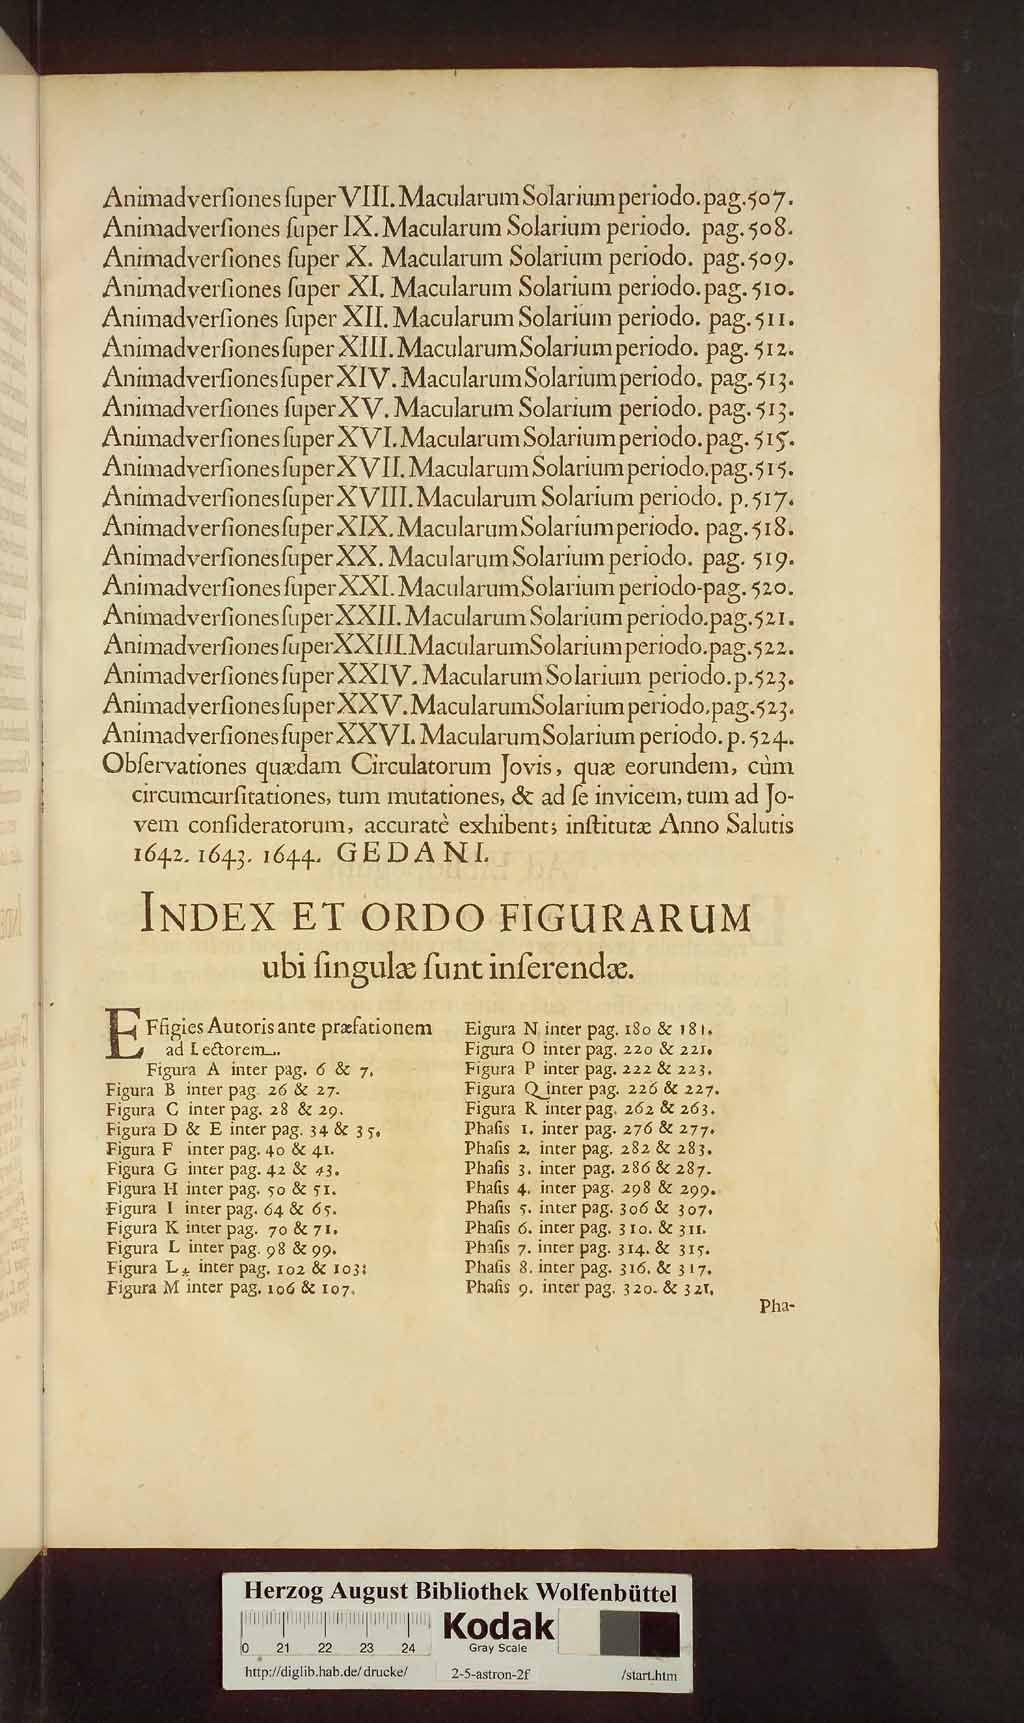 Animadverſiones ſuper VIII. Macularum Solarium periodo. pag. 507.
Animadverſiones ſuper IX. Macularum Solarium periodo. pag. 508.
Animadverſiones ſuper X. Macularum Solarium periodo. pag. 509.
Animadverſiones ſuper XI. Macularum Solarium periodo. pag. 510.
Animadverſiones ſuper XII. Macularum Solarium periodo. pag. 511.
Animadverſiones ſuper XIII. Macularum Solarium periodo. pag. 512.
Animadverſiones ſuper XIV. Macularum Solarium periodo. pag. 513.
Animadverſiones ſuper XV. Macularum Solarium periodo. pag. 513.
Animadverſiones ſuper XVI. Macularum Solarium periodo. pag. 515.
Animadverſiones ſuper XVII. Macularum Solarium periodo. pag. 515.
Animadverſiones ſuper XVIII. Macularum Solarium periodo. p. 517.
Animadverſiones ſuper XIX. Macularum Solarium periodo. pag. 518.
Animadverſiones ſuper XX. Macularum Solarium periodo. pag. 519.
Animadverſiones ſuper XXI. Macularum Solarium periodo-pag. 520.
Animadverſiones ſuper XXII. Macularum Solarium periodo. pag. 521.
Animadverſiones ſuper XXIII. Macularum Solarium periodo. pag. 522.
Animadverſiones ſuper XXIV. Macularum Solarium periodo. p. 523.
Animadverſiones ſuper XXV. Macularum Solarium periodo. pag. 523.
Animadverſiones ſuper XXVI. Macularum Solarium periodo. p. 524.
Obſervationes quædam Circulatorum Jovis, quæ eorundem, cùm
circumcurſitationes, tum mutationes, & ad ſe invicem, tum ad Jo-
vem conſideratorum, accuratè exhibent; inſtitutæ Anno Salutis
1642. 1643. 1644. GEDANI.
INDEX ET ORDO FIGURARUM
ubi ſingulæ ſunt inſerendæ.
EFfigies Autoris ante præfationem
ad Lectorem.
Figura A inter pag. 6 & 7.
Figura B inter pag. 26 & 27.
Figura C inter pag. 28 & 29.
Figura D & E inter pag. 34 & 35.
Figura F inter pag. 40 & 41.
Figura G inter pag. 42 & 43.
Figura H inter pag. 50 & 51.
Figura I inter pag. 64 & 65.
Figura K inter pag. 70 & 71.
Figura L inter pag. 98 & 99.
Figura L inter pag. 102 & 103:
Figura M inter pag. 106 & 107.
Eigura N inter pag. 180 & 181.
Figura O inter pag. 220 & 221.
Figura P inter pag. 222 & 223.
Figura Q inter pag. 226 & 227.
Figura R inter pag. 262 & 263.
Phaſis 1. inter pag. 276 & 277.
Phaſis 2. inter pag. 282 & 283.
Phaſis 3. inter pag. 286 & 287.
Phaſis 4. inter pag. 298 & 299.
Phaſis 5. inter pag. 306 & 307.
Phaſis 6. inter pag. 310. & 311.
Phaſis 7. inter pag. 314. & 315.
Phaſis 8. inter pag. 316. & 317.
Phaſis 9. inter pag. 320. & 321.
Pha-
Herzog August Bibliothek Wolfenbüttel
Kodak
Gray Scale
0 21 22 23 24
http://diglib.hab.de/drucke/ 2-5-astron-2f /start.htm